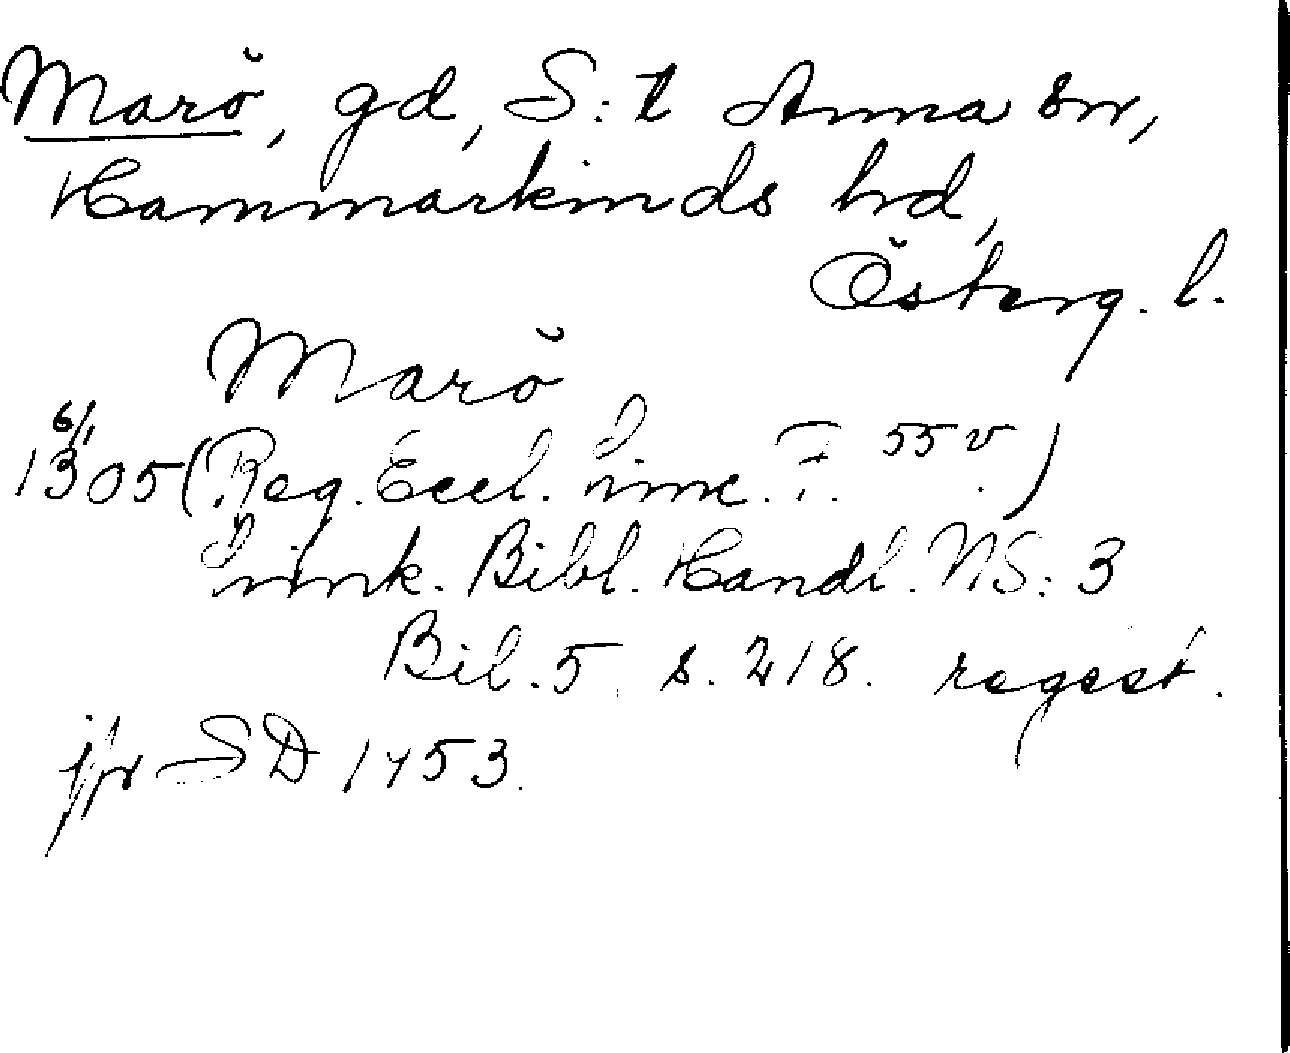 Marö, gd, S:t Anna sn,
Hammarkinds hd,
Österg. l.
Marö
6/1
1305 (Reg. Eccl. Linc. F. 55 v.)
Link. Bibl. Handl. NS: 3
Bil. 5 s. 218. regest.
jfr SD 1453.